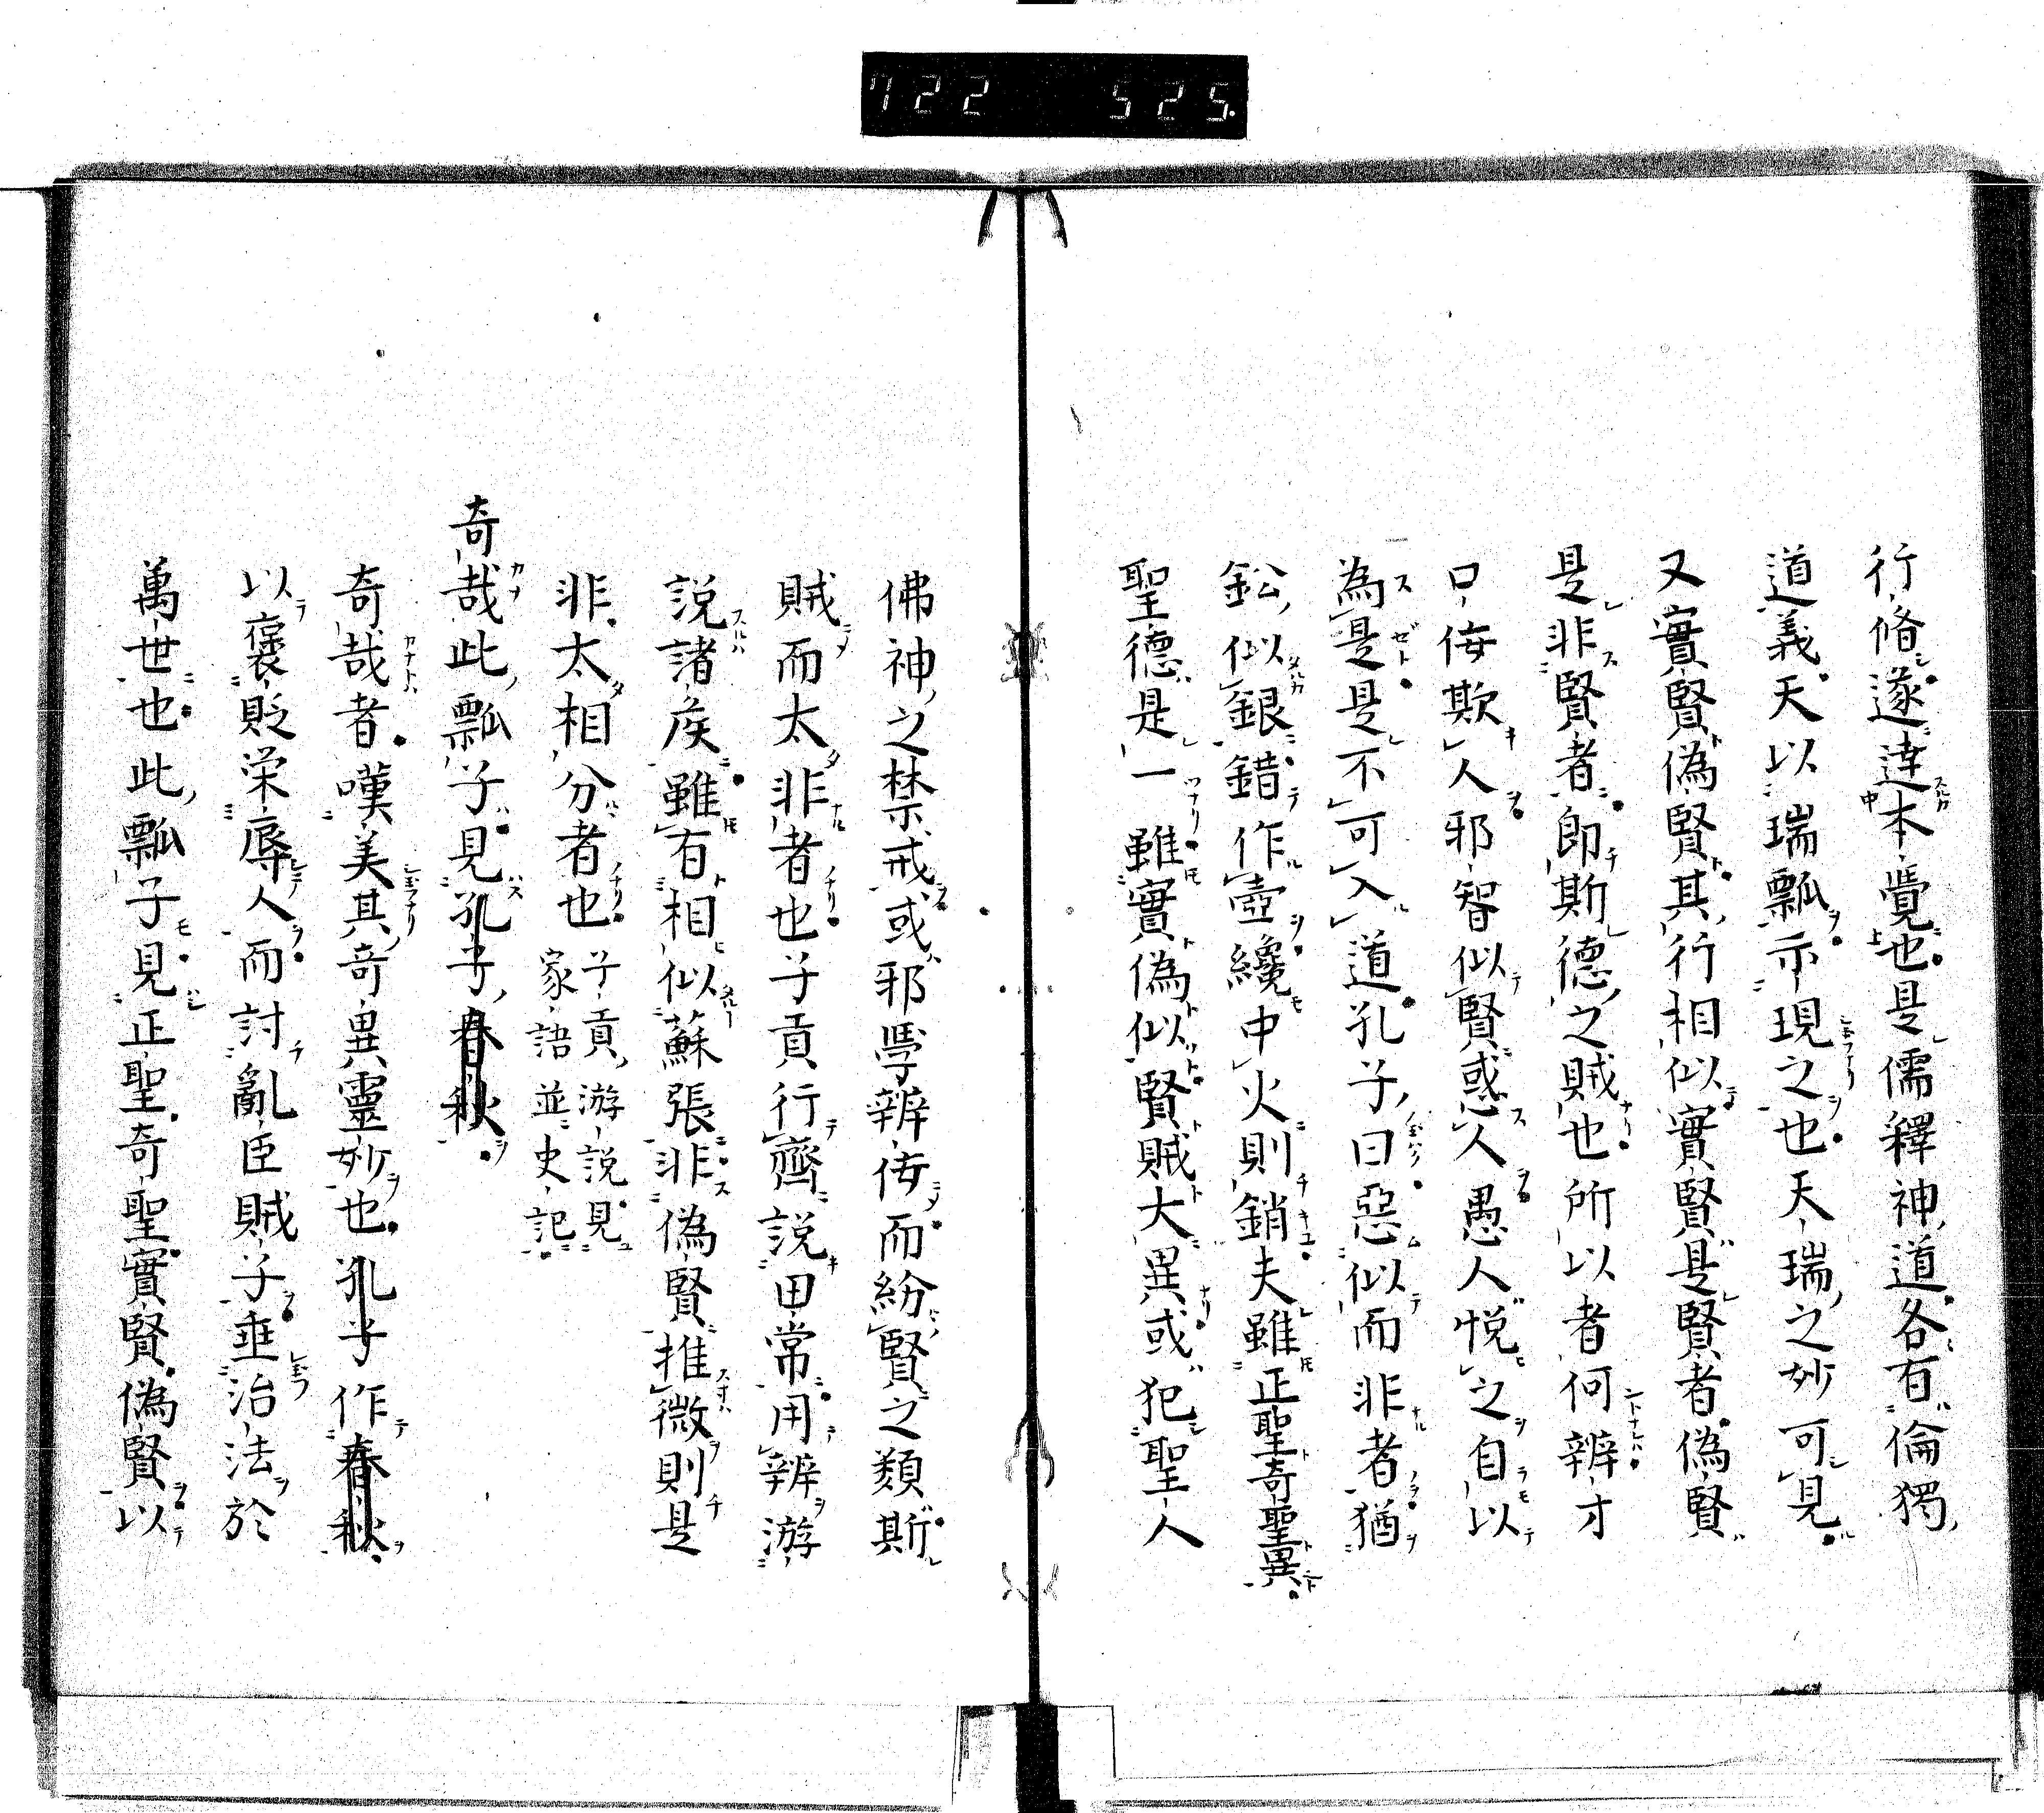 722 525.
行脩遂達本覺也是儒釋神道各有倫獨
道義天以瑞瓢示現之也天瑞之妙可見
又實賢偽賢其行相似實賢是賢者偽賢
是非賢者即斯德之賊也所以者何辨才
口侫欺人邪智似賢惑人愚人悦之自以
為是是不可入道孔子曰惡似而非者猶
鈆似銀錯作壺纔中火則銷夫雖正聖奇聖異
聖德是一雖實偽似賢賊大異或犯聖人
佛神之禁戒或邪學辨侫而紛賢之類斯
賊而太非者也子貢行齊說田常用辨游
說諸矦雖有相似蘇張非偽賢推微則是
非太相分者也子貢游說見
家語並史記
奇哉此瓢子見孔子春秋
奇哉者嘆美其奇異靈妙也孔子作春秋
以褒貶栄辱人而討亂臣賊子垂治法於
萬世也此瓢子見正聖奇聖實賢偽賢以